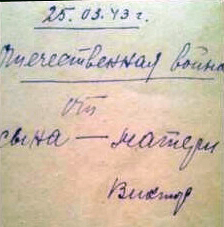 25.03.43 г.
Отечественная война
от
сына — матери
Виктор